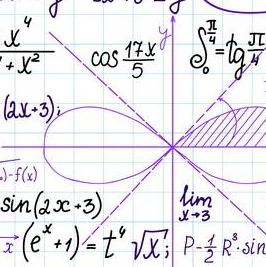 x⁴
+ x²
cos 17x/5
y
∫₀^(π/4) = tg π/4
(2x+3);
)-f(x)
sin(2x+3)
lim
x→3
x
(eˣ+1) = t⁴ √x;
P-1/2 R⁸·sin